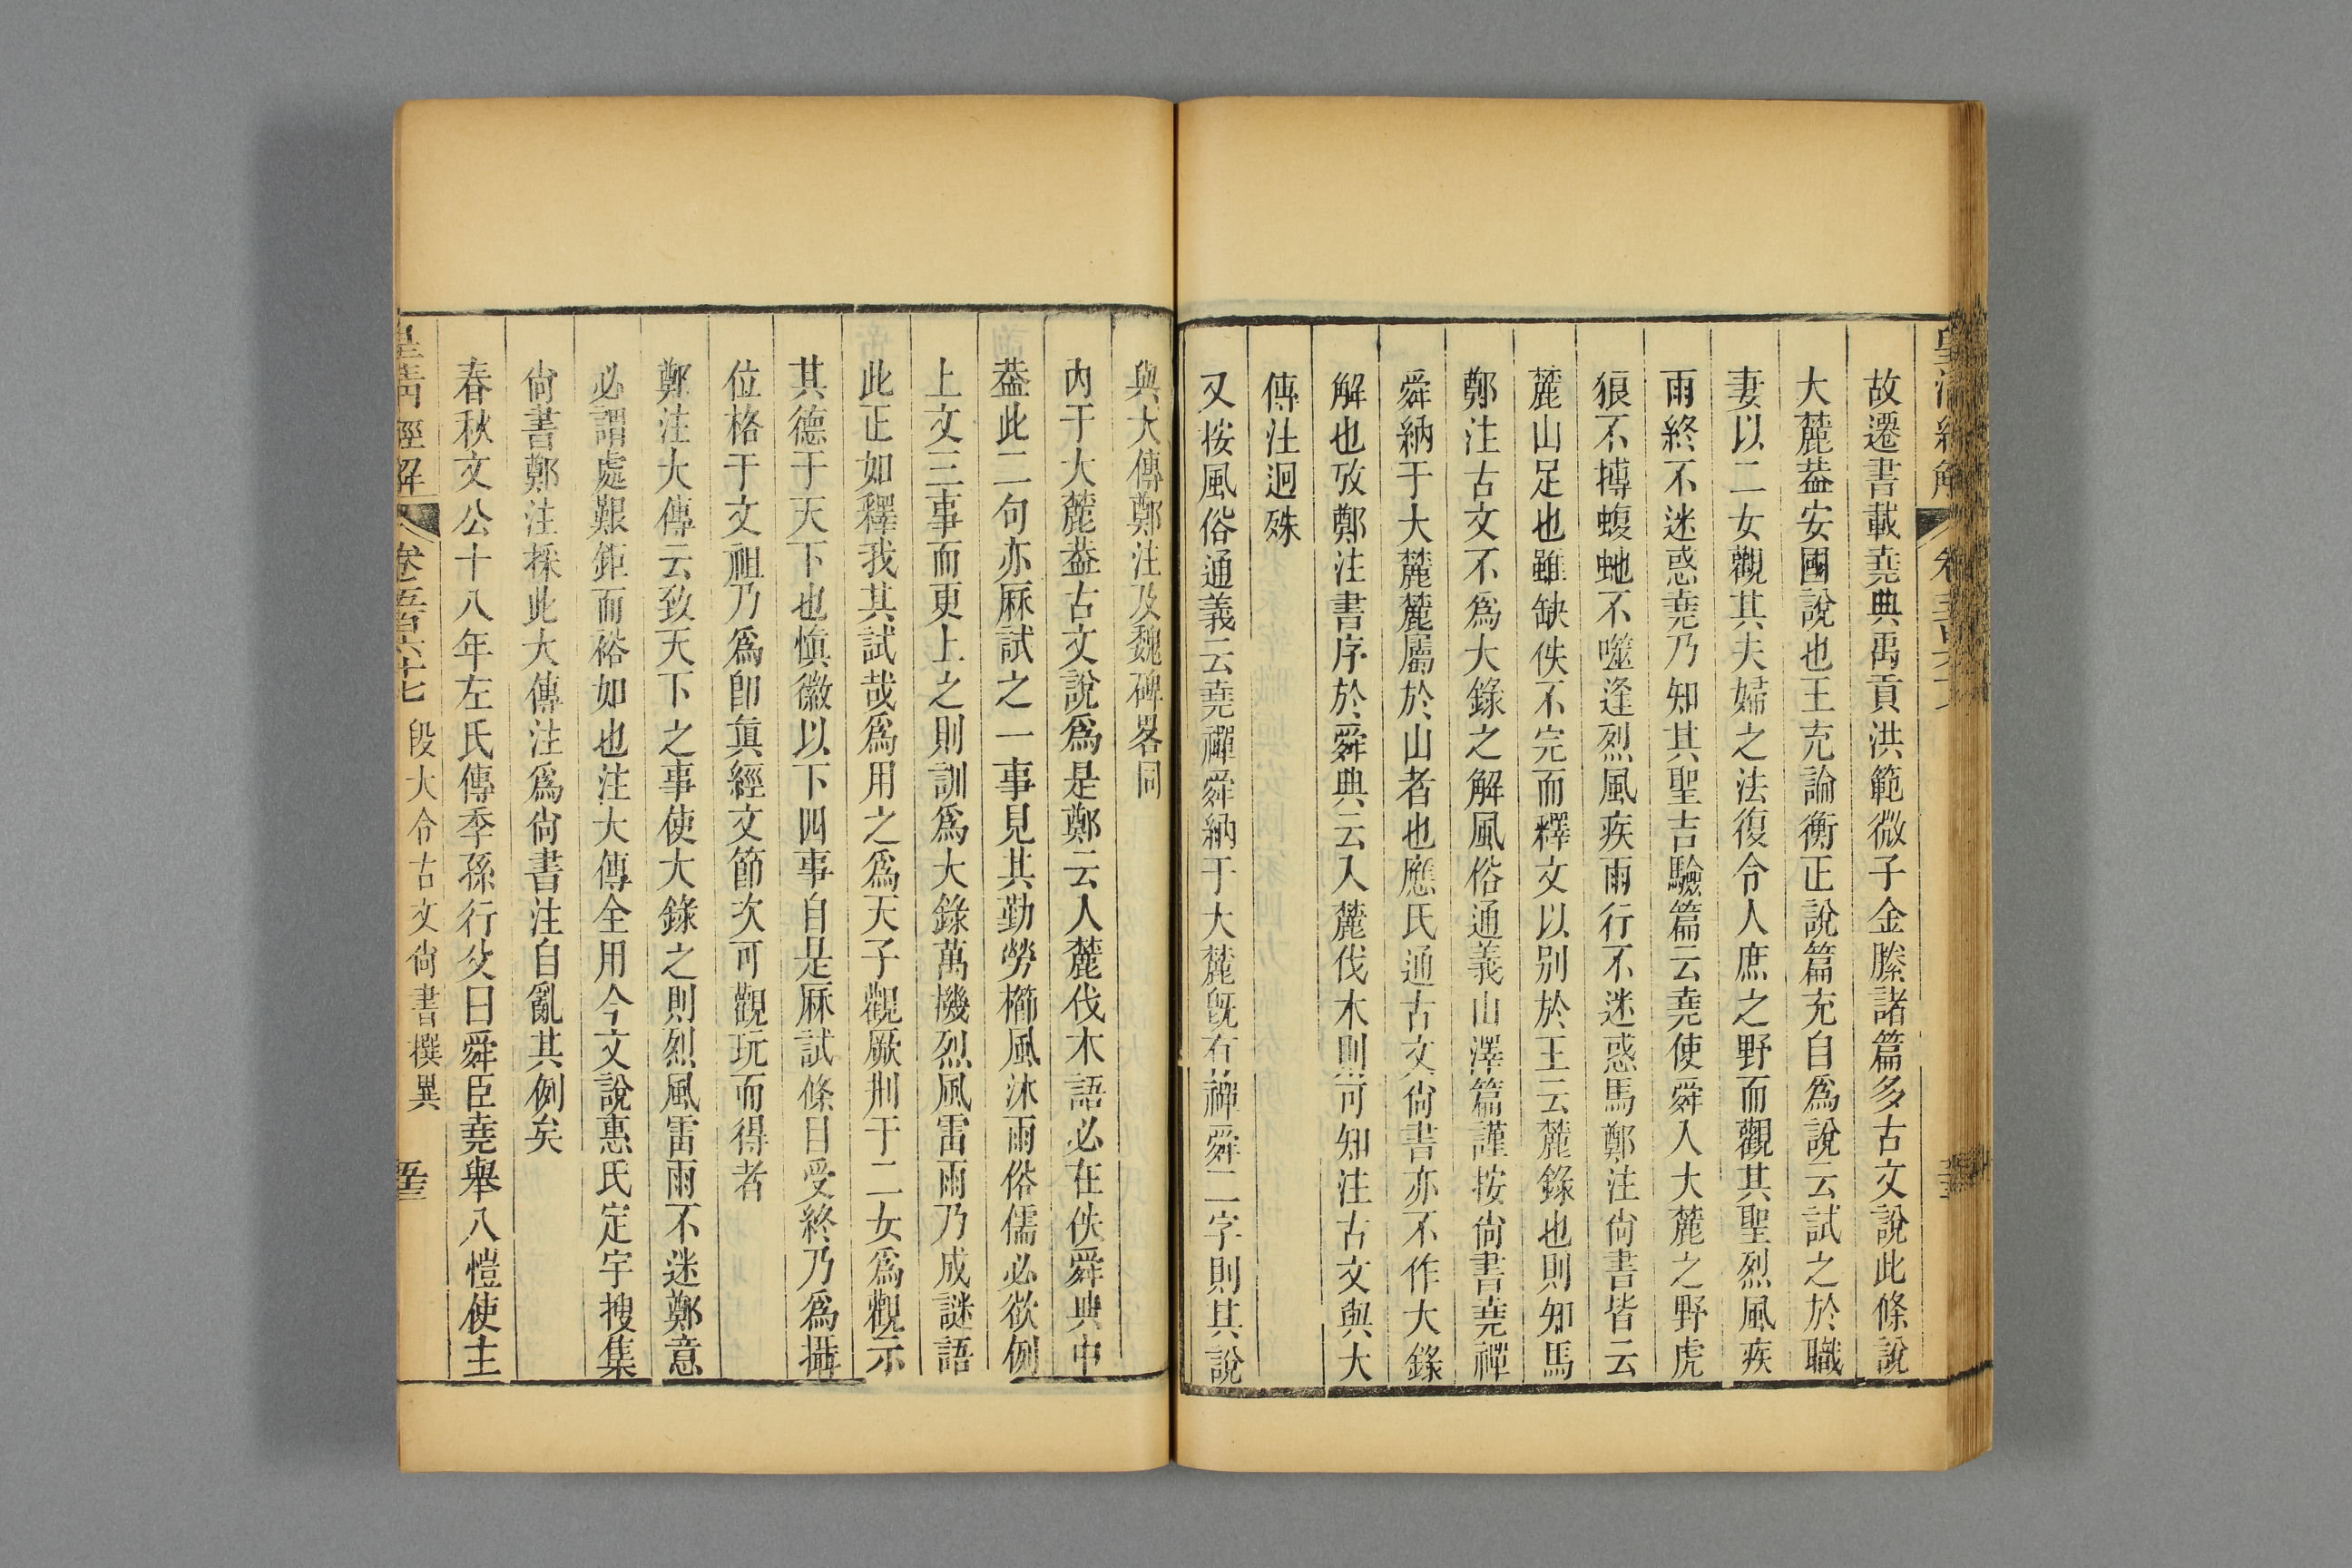 皇清經解
故遷書載堯典禹貢洪範微子金縢諸篇多古文說此條說
大麓葢安國說也王充論衡正說篇充自爲說云試之於職
妻以二女觀其夫婦之法復令人庶之野而觀其聖烈風疾
雨終不迷惑堯乃知其聖吉驗篇云堯使舜入大麓之野虎
狼不搏蝮虵不噬逢烈風疾雨行不迷惑馬鄭注尙書皆云
麓山足也雖缺佚不完而釋文以别於王云麓錄也則知馬
鄭注古文不爲大錄之解風俗通義山澤篇謹按尙書堯禪
舜納于大麓麓屬於山者也應氏通古文尙書亦不作大錄
解也攷鄭注書序於舜典云入麓伐木則可知注古文與大
傳注迥殊
又按風俗通義云堯禪舜納于大麓旣有禪舜二字則其說
與大傳鄭注及魏碑畧同
內于大麓葢古文說爲是鄭云入麓伐木語必在佚舜典中
葢此二句亦厤試之一事見其勤勞櫛風沐雨俗儒必欲例
上文三事而更上之則訓爲大錄萬機烈風雷雨乃成謎語
此正如釋我其試哉爲用之爲天子觀厥刑于二女爲觀示
其德于天下也愼徽以下四事自是厤試條目受終乃爲攝
位格于文祖乃爲卽眞經文節次可觀玩而得者
鄭注大傳云致天下之事使大錄之則烈風雷雨不迷鄭意
必謂處艱鉅而裕如也注大傳全用今文說惠氏定宇搜集
尙書鄭注採此大傳注爲尙書注自亂其例矣
春秋文公十八年左氏傳季孫行父曰舜臣堯舉八愷使主
皇清經解 卷五百六十七 段大令古文尙書撰異 五三